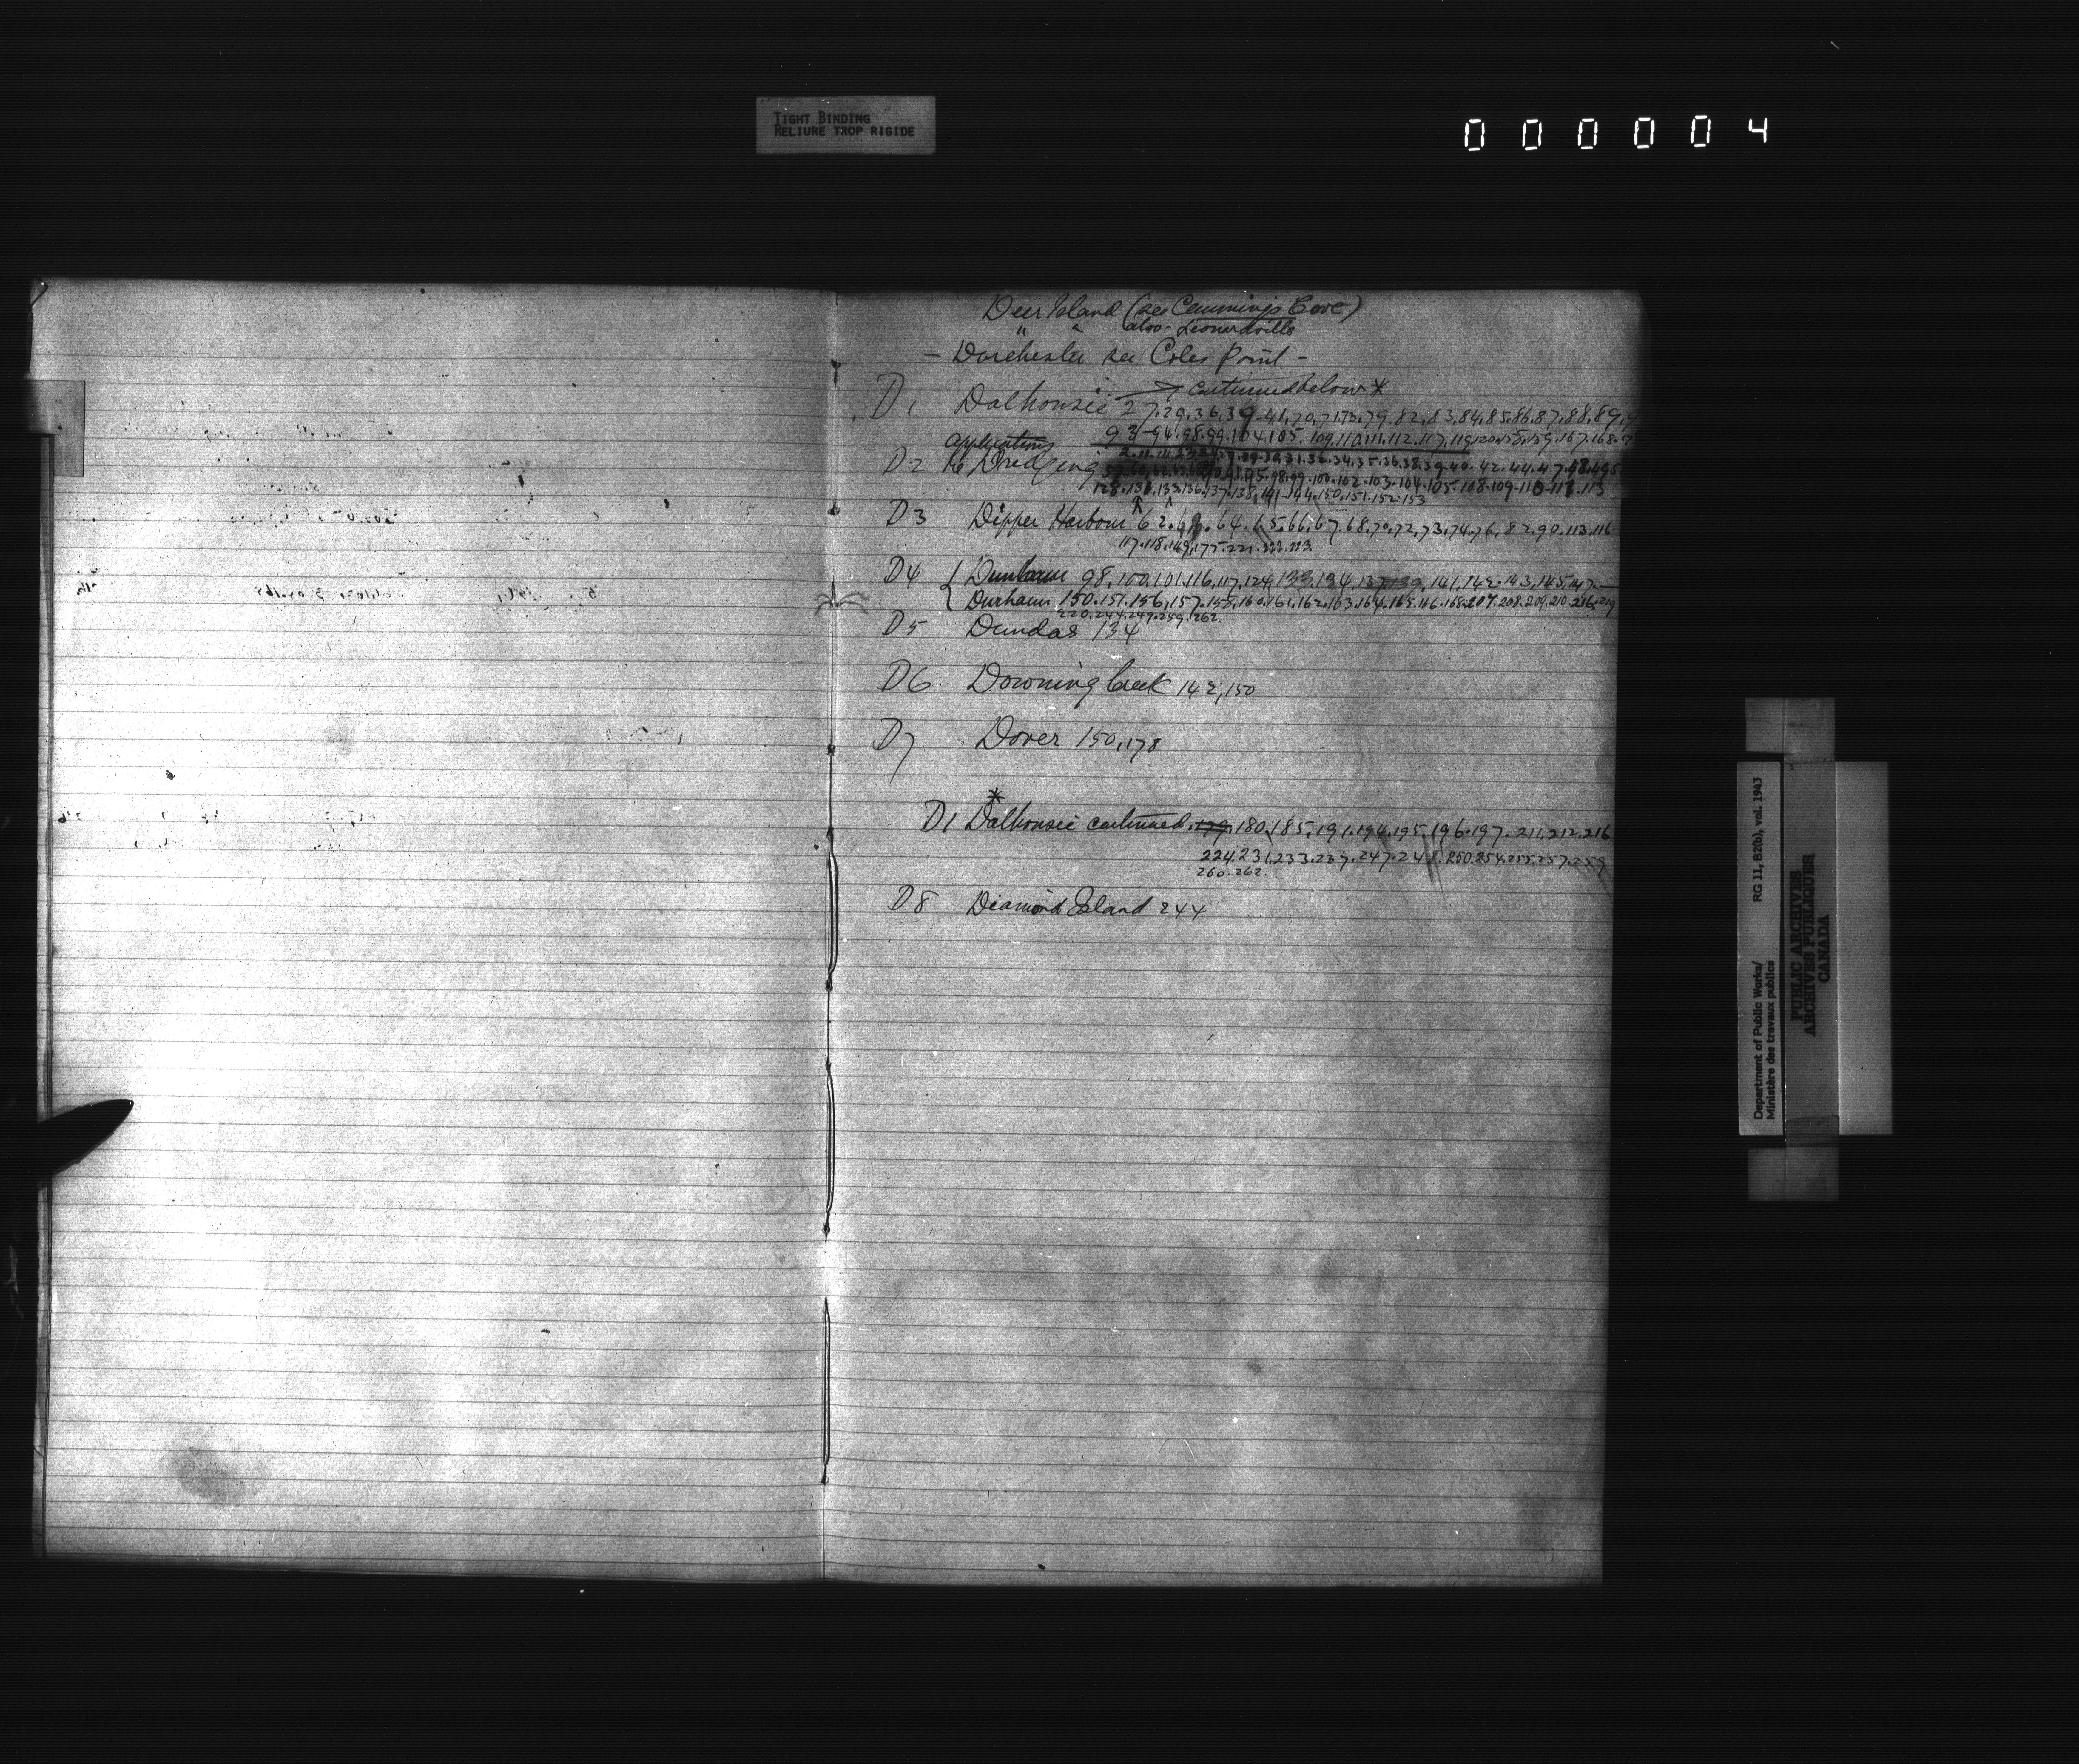 TIGHT BINDING
RELIURE TROP RIGIDE
000004
Deer Island (see Cummings Cove)
" " also - Leonardville
- Dorchester see Coles Point -
D1 Dalhousie → continued below *
27.29,36,39.41,70,71.73,79.82.83,84,85.86,87,88,89,9
93-94.98.99.104.105. 109.110.111.112.117,119,120.158,159.167.168.
applications
D2 re Dredging
30,31.32.34,35.36.38.39-40.42.44.47.48.49
98.99.100.102.103.104.105.108.109-110-111.113
128.131.133.136.137.138,141-144.150.151.152-153
D3 Dipper Harbour 62. 64.65.66,67.68,70,72,73,74.76,82.90.113.116
117.118.169,175.221.222.223.
D4 { Dunbarm 98,100,101.116,117,124,133,134,137,139,141,142.143,145,147—
Durham 150.151.156,157.158,160.161.162.163.164.165.166.168.207.208.209.210.216.219
220.244.249.259.262.
D5 Dundas 134
D6 Downing Creek 142,150
D7 Dover 150,178
*
D1 Dalhousie continued 179.180.185,191.194.195.196.197.211.212.216
224.231.233.237.247.248.250.254.255.257.259
260.262.
D8 Diamond Island 244
Department of Public Works/ RG 11, B2(b), vol. 1943
Ministère des travaux publics
PUBLIC ARCHIVES
ARCHIVES PUBLIQUES
CANADA